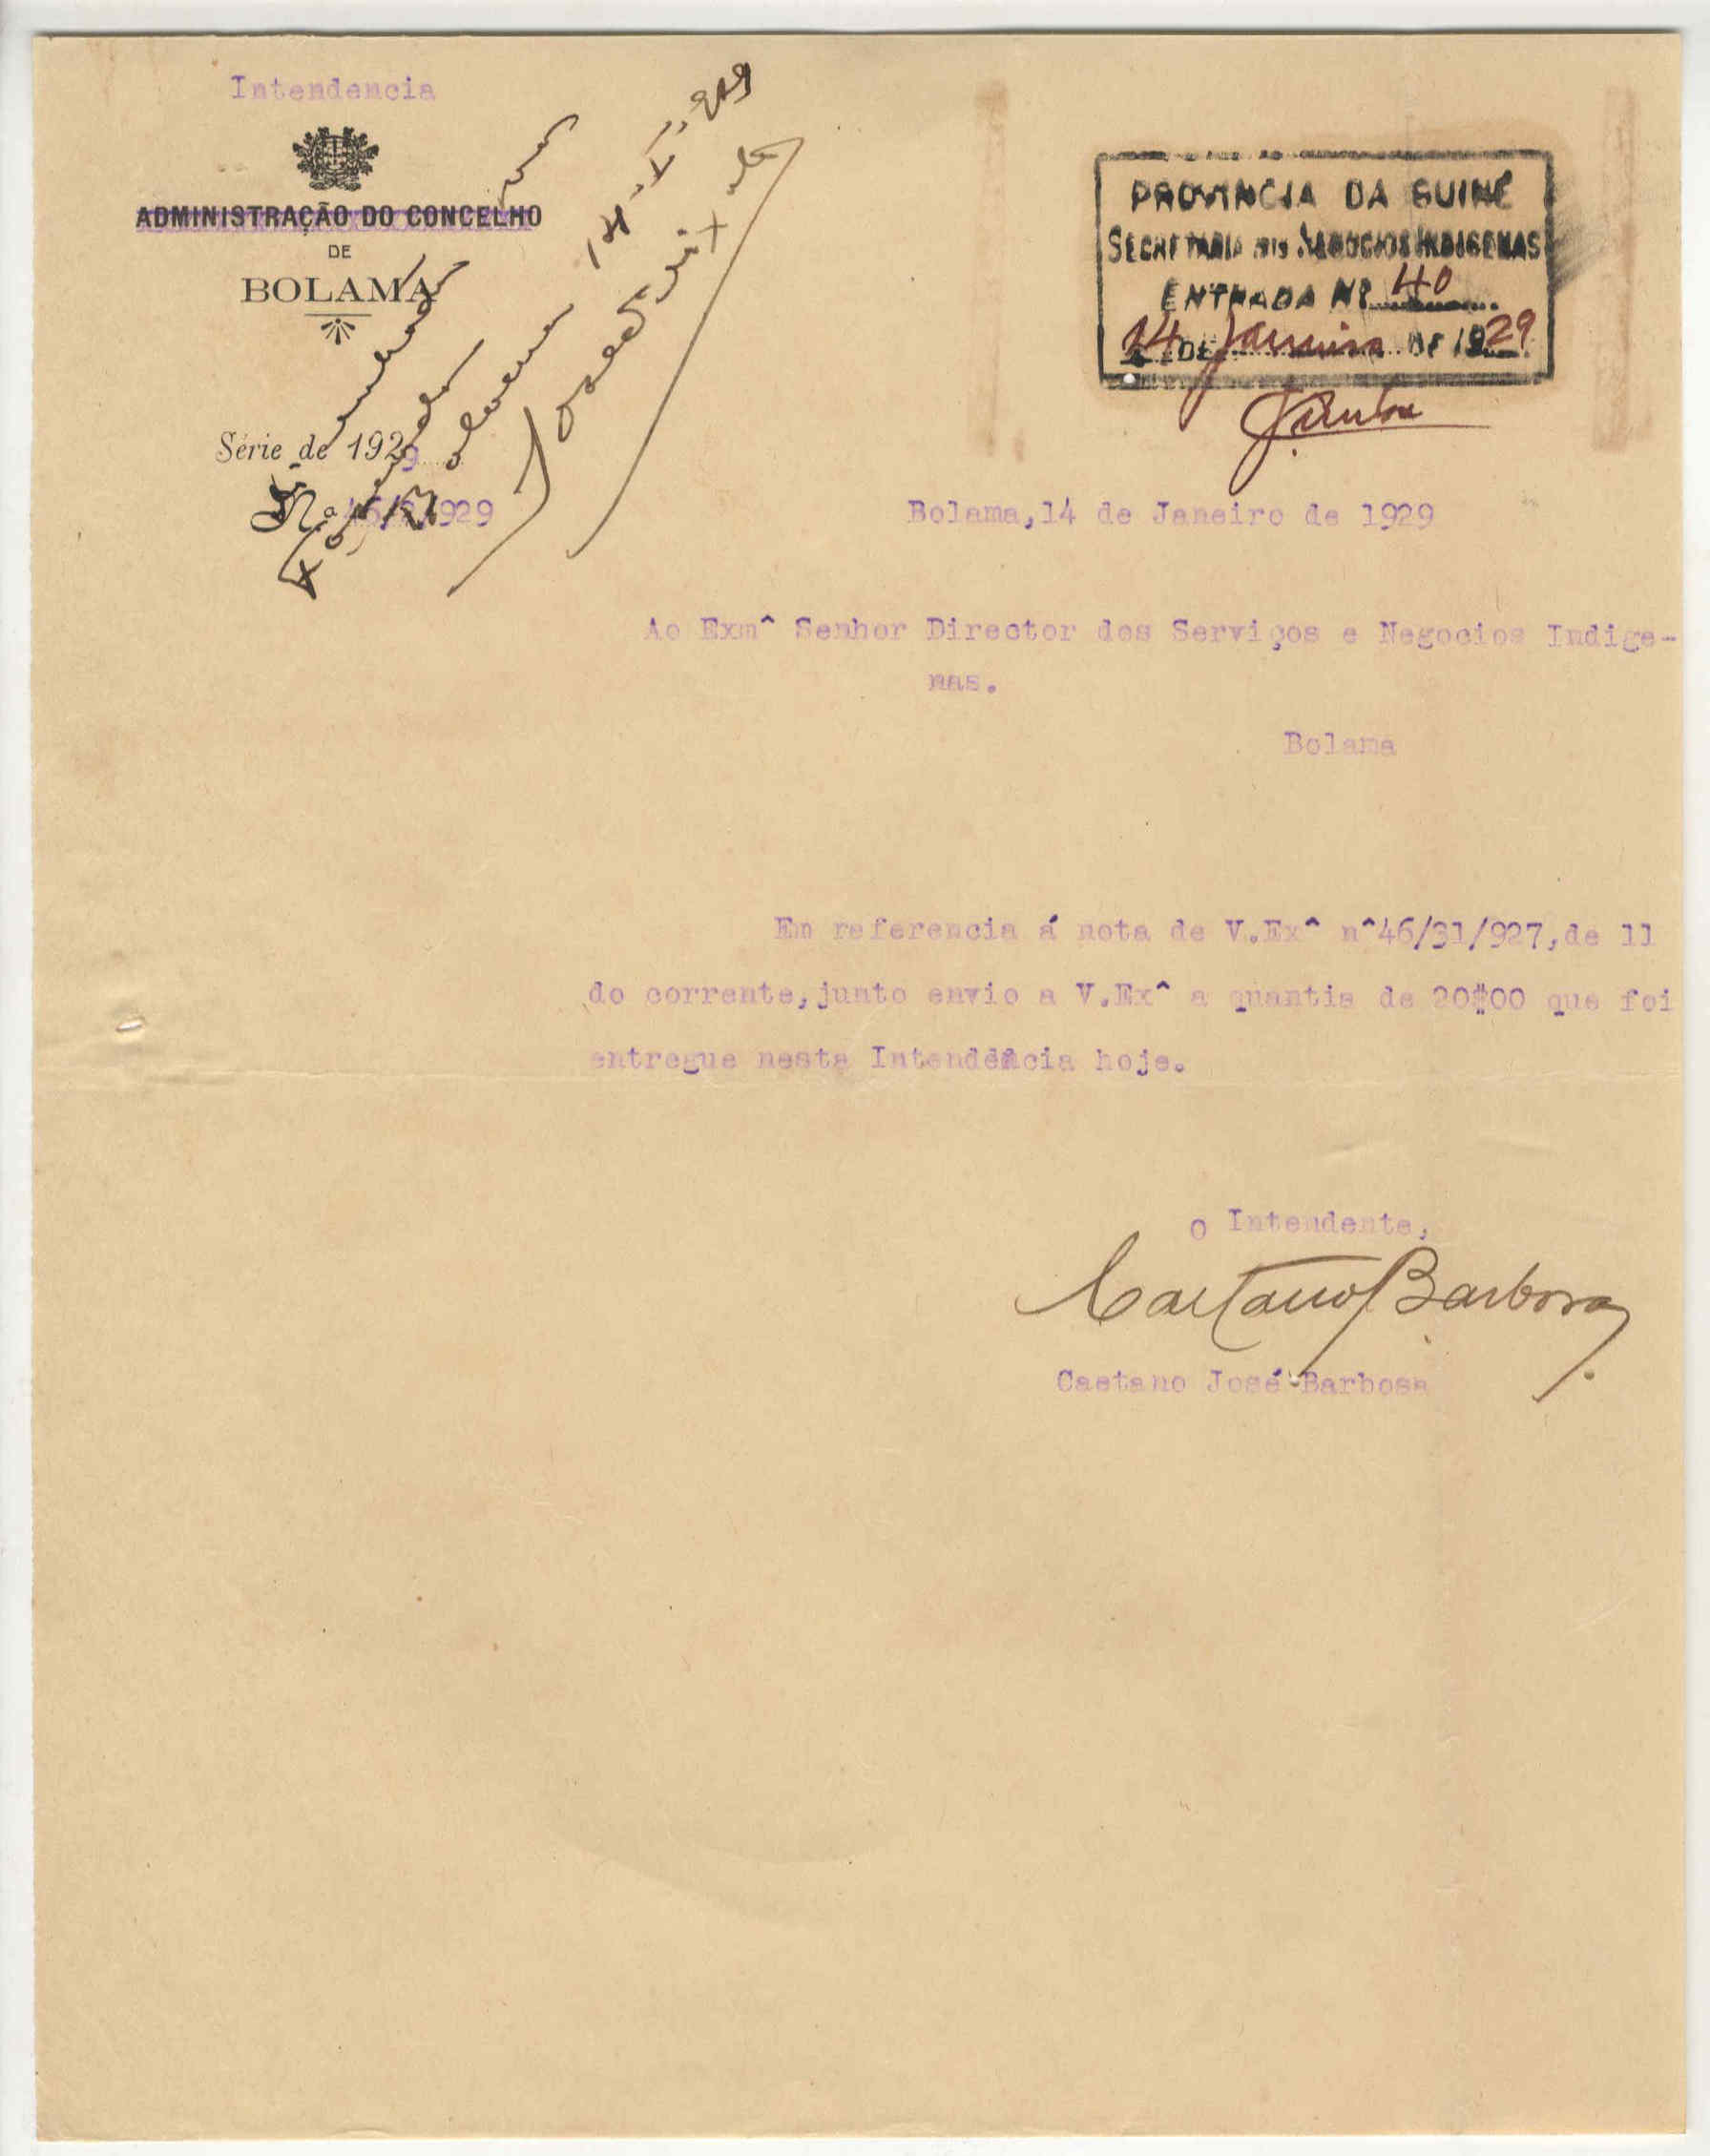 Intendencia
ADMINISTRAÇÃO DO CONCELHO
DE
BOLAMA
Série de 1929
N.ª 46/ /929
14-I-929
PROVINCIA DA GUINÉ
SECRETARIA DOS NEGOCIOS INDIGENAS
ENTRADA Nº 40
14 DE Janeiro DE 1929
Bolama,14 de Janeiro de 1929
Ao Exm^ Senhor Director dos Serviços e Negocios Indige-
nas.
Bolama
Em referencia á nota de V.Ex^ n^46/31/927,de 11
do corrente,junto envio a V.Ex^ a quantia de 20$00 que foi
entregue nesta Intendência hoje.
O Intendente,
Caetano J Barbosa
Caetano José Barbosa